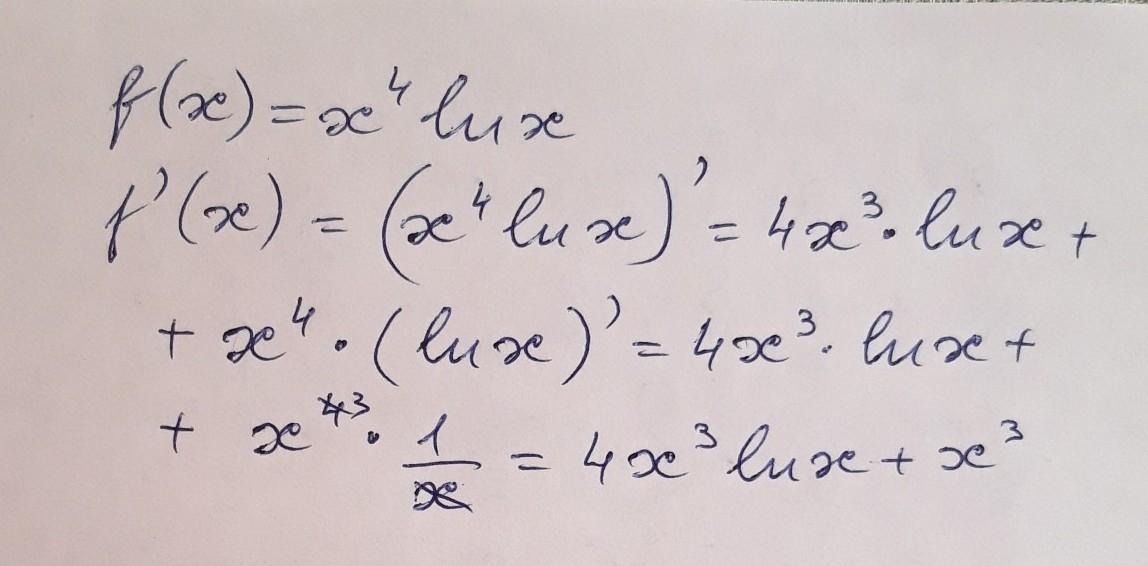 f(x) = x⁴ ln x
f'(x) = (x⁴ ln x)' = 4x³ · ln x +
+ x⁴ · (ln x)' = 4x³ · ln x +
+ x^{~~4~~ 3} · 1/~~x~~ = 4x³ ln x + x³